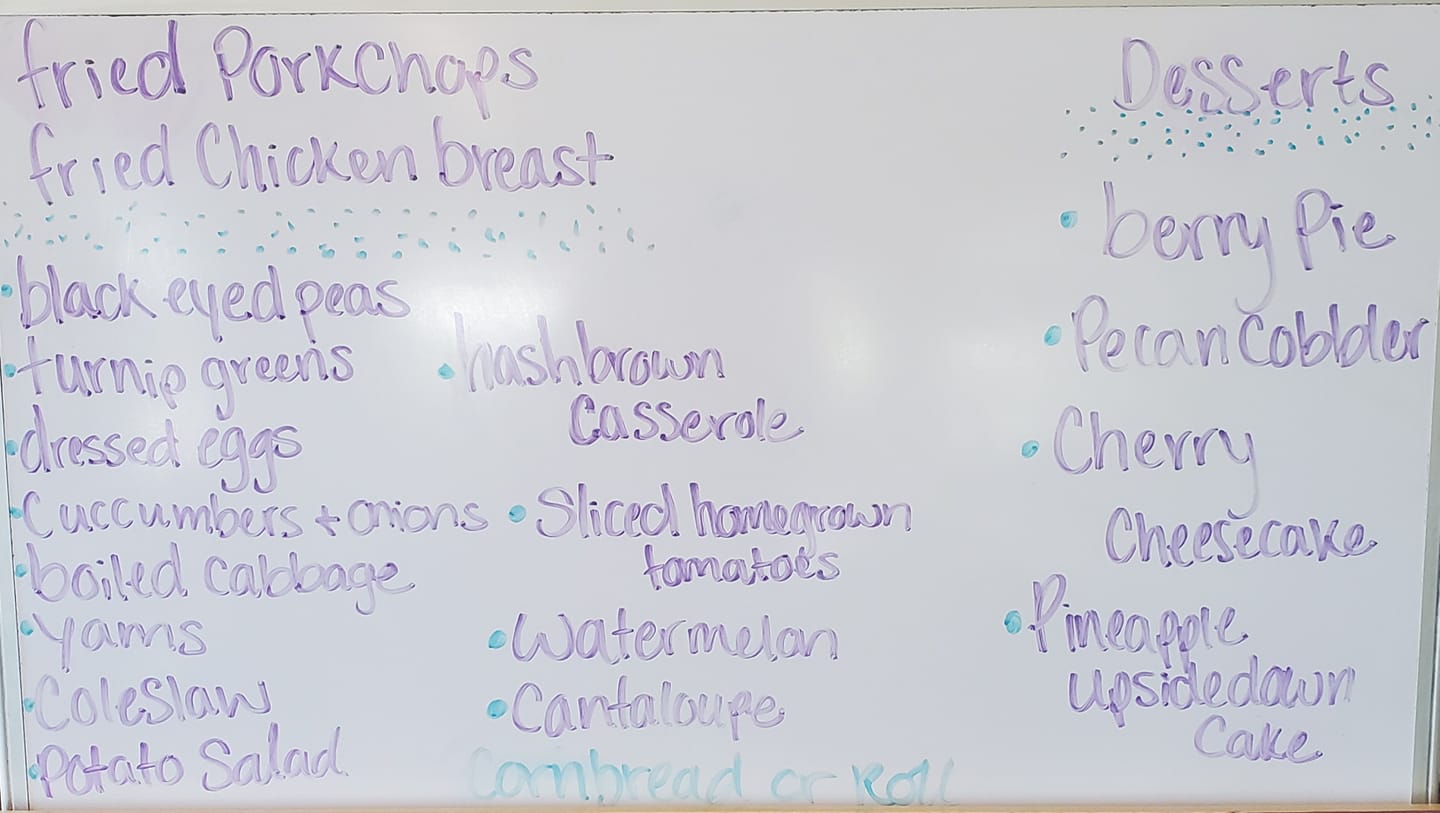 fried PorkChops
fried Chicken breast
• black eyed peas
• turnip greens
• dressed eggs
• Cuccumbers + onions
• boiled Cabbage
• yams
• ColeSlaw
• Potato Salad
• hashbrown
Casserole
• Sliced homegrown
tomatoes
• Watermelon
• Cantaloupe
Cornbread or Roll
Desserts
• berry Pie
• Pecan Cobbler
• Cherry
Cheesecake
• Pineapple
upsidedown
Cake